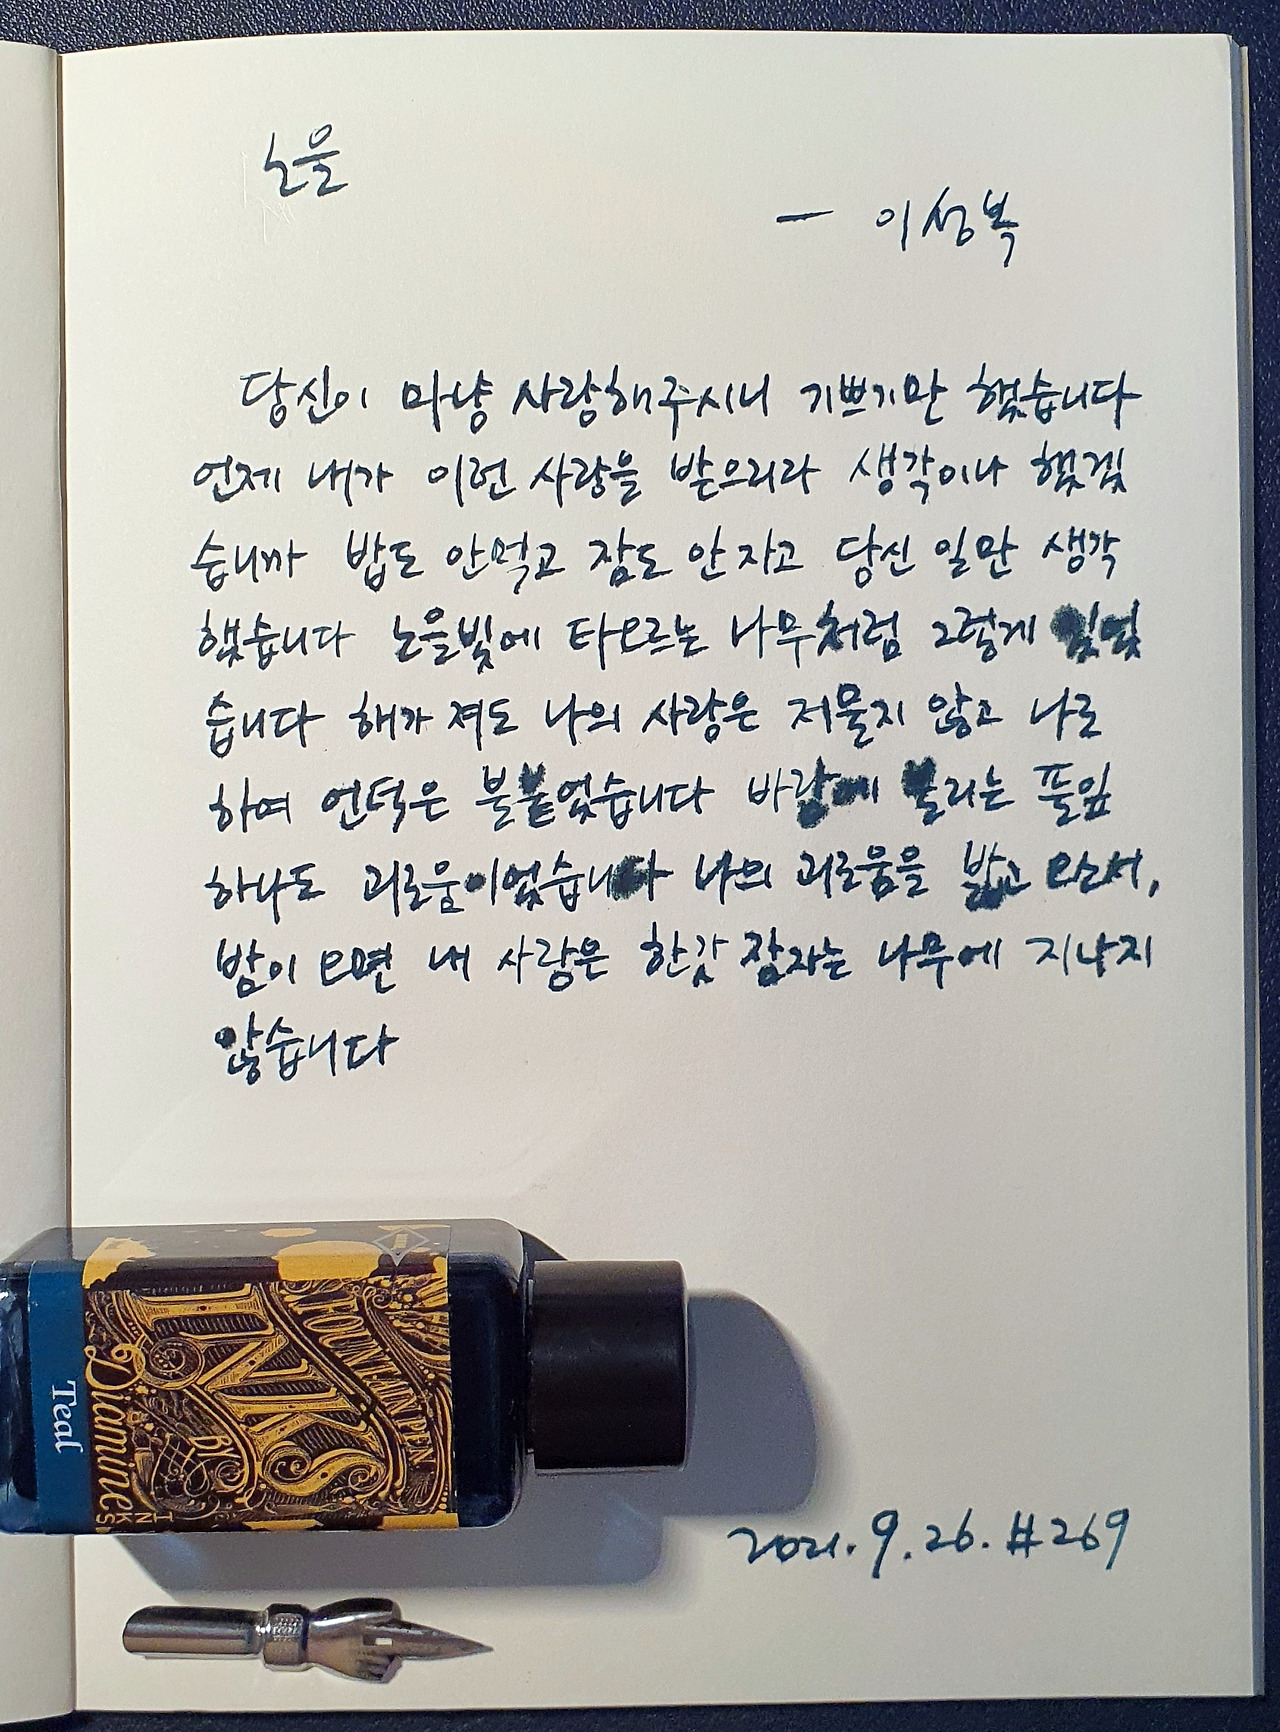 노을
— 이성복
당신이 마냥 사랑해주시니 기쁘기만 했습니다
언제 내가 이런 사랑을 받으리라 생각이나 했겠
습니까 밥도 안먹고 잠도 안자고 당신 일만 생각
했습니다 노을빛에 타오르는 나무처럼 그렇게 있었
습니다 해가 져도 나의 사랑은 저물지 않고 나로
하여 언덕은 불붙었습니다 바람에 불리는 풀잎
하나도 괴로움이었습니다 나의 괴로움을 밟고 오소서,
밤이 오면 내 사랑은 한갓 잠자는 나무에 지나지
않습니다
FOUNTAIN PEN
INKS
BY
Diamine
INKS
Teal
2021.9.26.#269